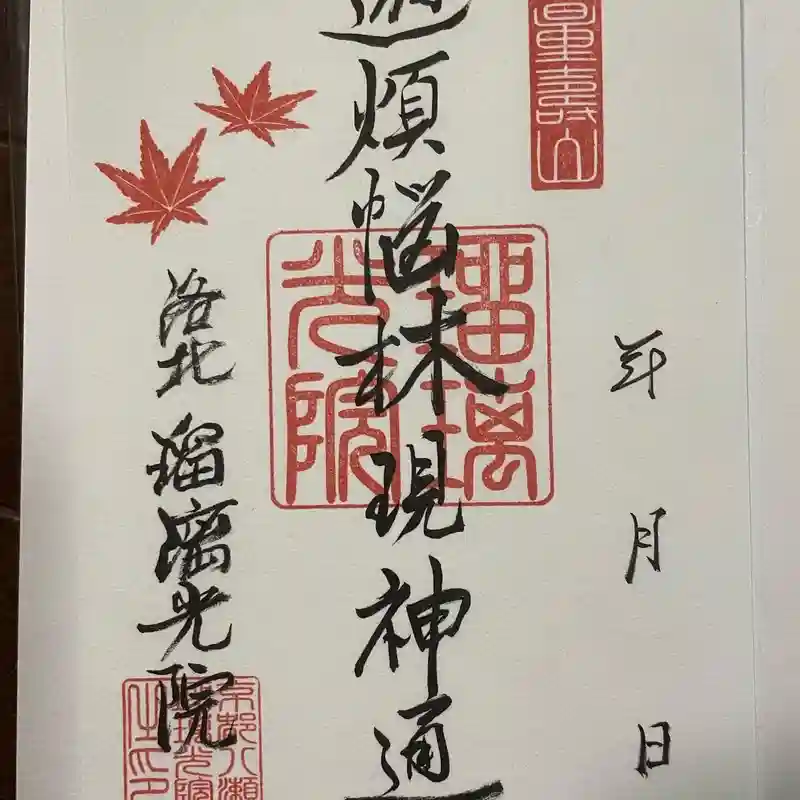 量壽山
年 月 日
遊煩悩林現神通
瑠璃
光院
洛北 瑠璃光院
京都八瀬
瑠璃光院
之印